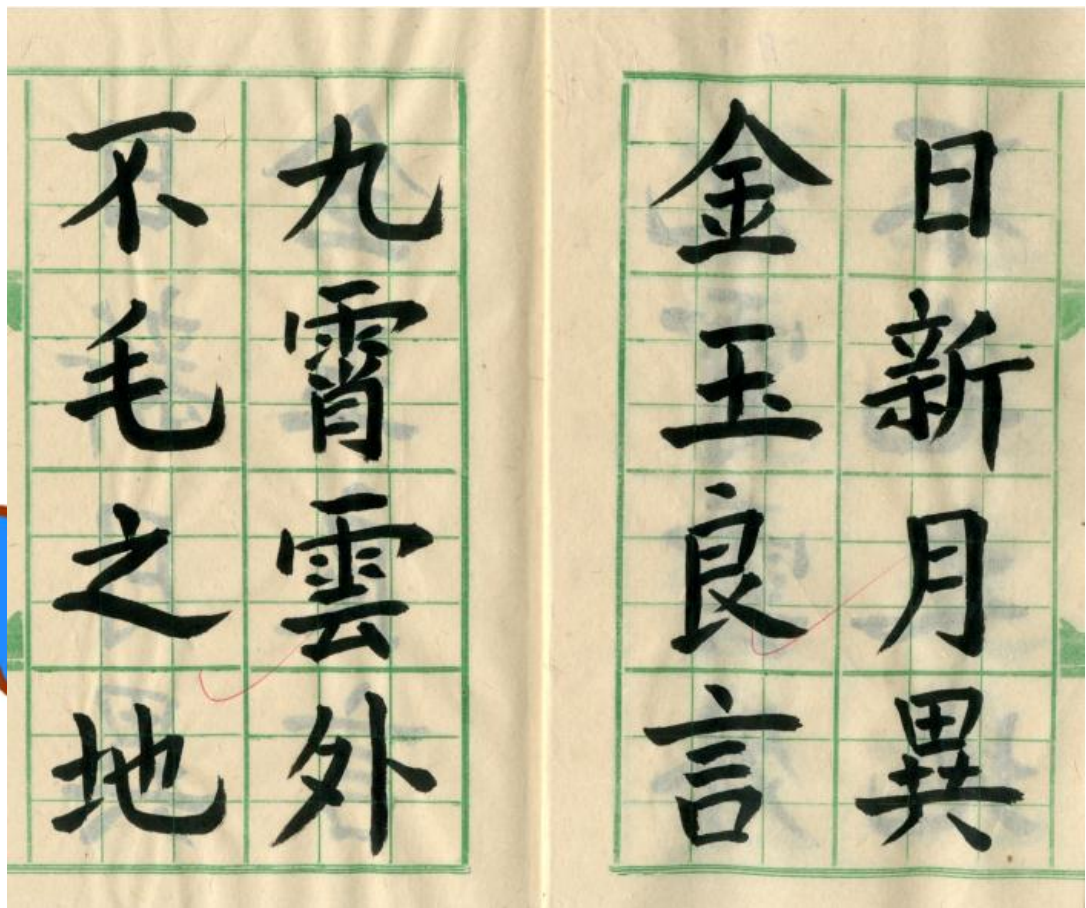 日新月異
金玉良言
九霄雲外
不毛之地